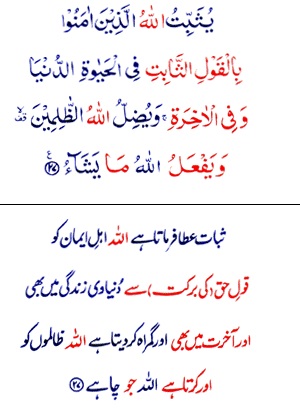 يُثَبِّتُ اللهُ الَّذِيْنَ اٰمَنُوْا
بِالْقَوْلِ الثَّابِتِ فِي الْحَيٰوةِ الدُّنْيَا
وَفِي الْاٰخِرَةِ ۚ وَيُضِلُّ اللهُ الظّٰلِمِيْنَ ۙ قف
وَيَفْعَلُ اللهُ مَا يَشَآءُ ۧ ﴿۲۷﴾
ثبات عطا فرماتا ہے اللہ اہلِ ایمان کو
قولِ حق (کی برکت) سے دُنیاوی زندگی میں بھی
اور آخرت میں بھی اور گمراہ کر دیتا ہے اللہ ظالموں کو
اور کرتا ہے اللہ جو چاہے ﴿۲۷﴾